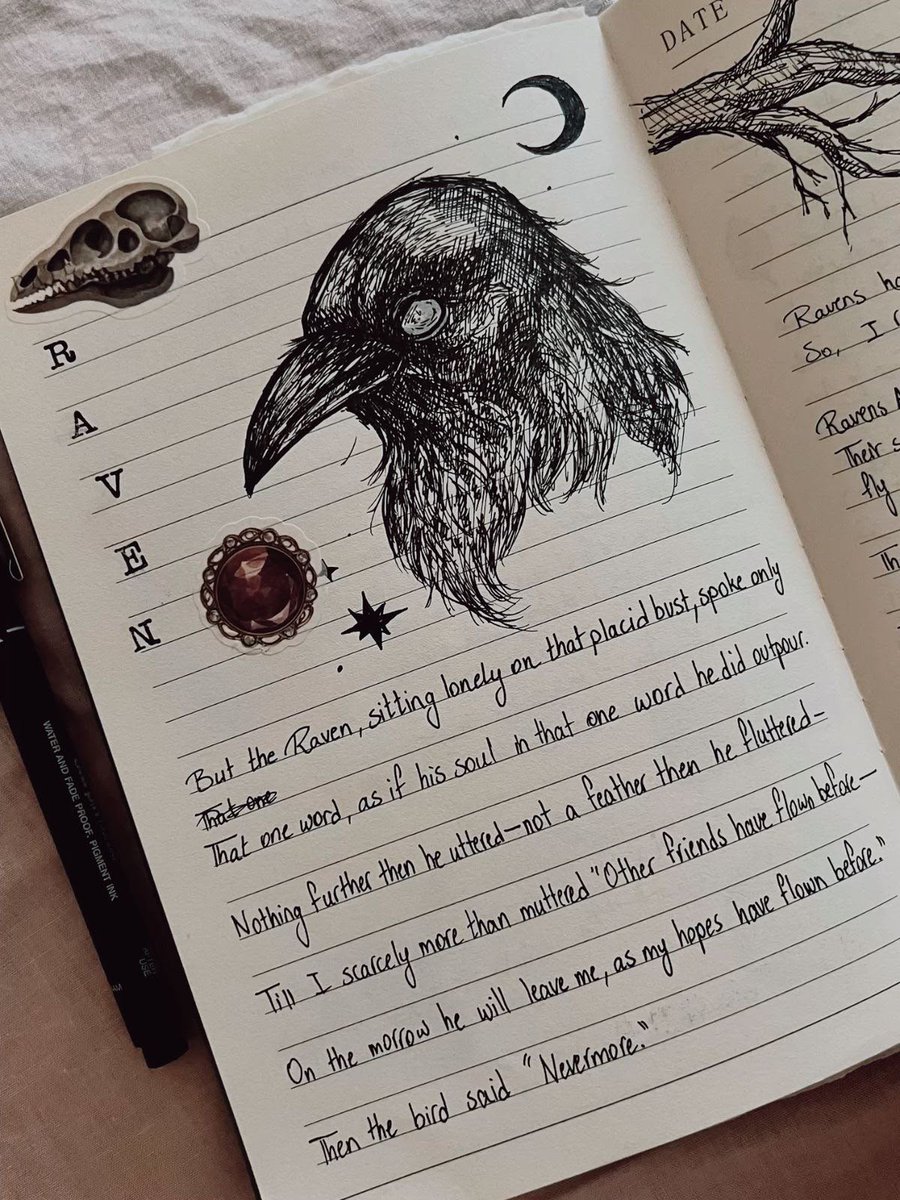 DATE
R
A
V
E
N
But the Raven, sitting lonely on that placid bust, spoke only
That one
That one word, as if his soul in that one word he did outpour.
Nothing further then he uttered—not a feather then he fluttered—
Till I scarcely more than muttered "Other friends have flown before—
On the morrow he will leave me, as my hopes have flown before."
Then the bird said "Nevermore."
Ravens
So, I
Ravens
Their
fly
WATER AND FADE PROOF, PIGMENT INK
USE